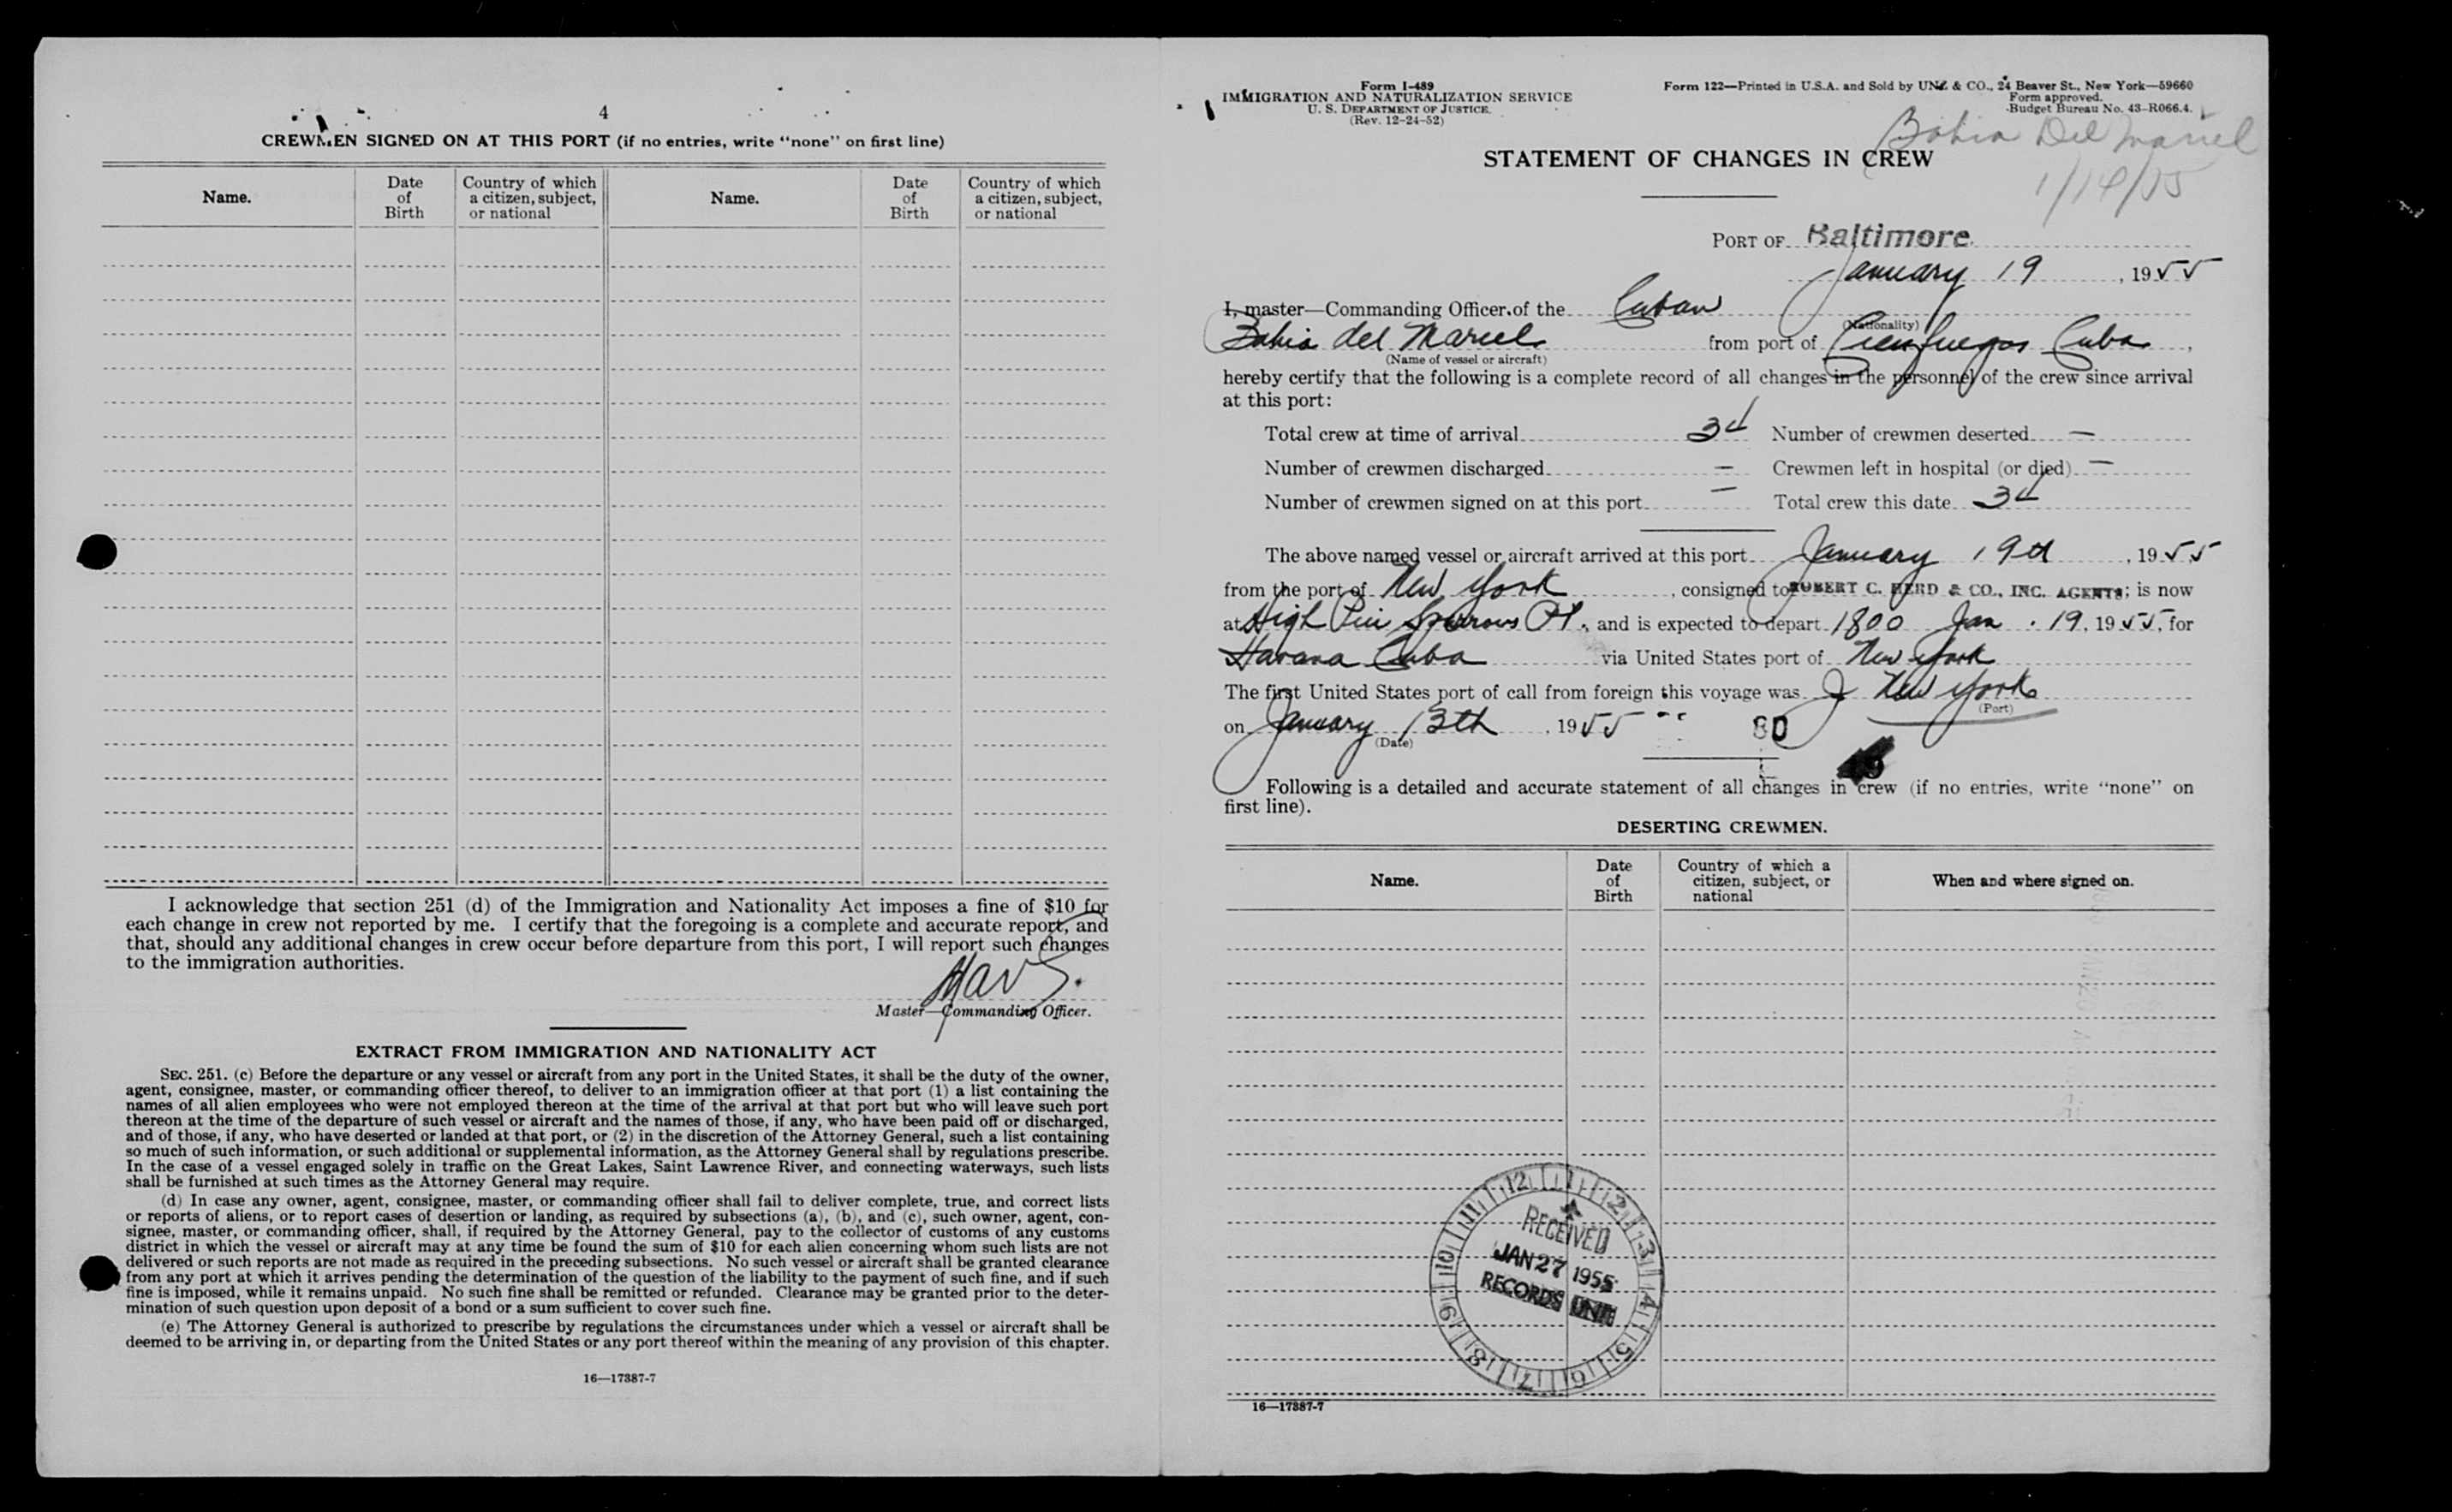 4
CREWMEN SIGNED ON AT THIS PORT (if no entries, write "none" on first line)
Name. Date of Birth Country of which a citizen, subject, or national Name. Date of Birth Country of which a citizen, subject, or national
I acknowledge that section 251 (d) of the Immigration and Nationality Act imposes a fine of $10 for
each change in crew not reported by me. I certify that the foregoing is a complete and accurate report, and
that, should any additional changes in crew occur before departure from this port, I will report such changes
to the immigration authorities.
Master—Commanding Officer.
EXTRACT FROM IMMIGRATION AND NATIONALITY ACT
SEC. 251. (c) Before the departure or any vessel or aircraft from any port in the United States, it shall be the duty of the owner,
agent, consignee, master, or commanding officer thereof, to deliver to an immigration officer at that port (1) a list containing the
names of all alien employees who were not employed thereon at the time of the arrival at that port but who will leave such port
thereon at the time of the departure of such vessel or aircraft and the names of those, if any, who have been paid off or discharged,
and of those, if any, who have deserted or landed at that port, or (2) in the discretion of the Attorney General, such a list containing
so much of such information, or such additional or supplemental information, as the Attorney General shall by regulations prescribe.
In the case of a vessel engaged solely in traffic on the Great Lakes, Saint Lawrence River, and connecting waterways, such lists
shall be furnished at such times as the Attorney General may require.
(d) In case any owner, agent, consignee, master, or commanding officer shall fail to deliver complete, true, and correct lists
or reports of aliens, or to report cases of desertion or landing, as required by subsections (a), (b), and (c), such owner, agent, con-
signee, master, or commanding officer, shall, if required by the Attorney General, pay to the collector of customs of any customs
district in which the vessel or aircraft may at any time be found the sum of $10 for each alien concerning whom such lists are not
delivered or such reports are not made as required in the preceding subsections. No such vessel or aircraft shall be granted clearance
from any port at which it arrives pending the determination of the question of the liability to the payment of such fine, and if such
fine is imposed, while it remains unpaid. No such fine shall be remitted or refunded. Clearance may be granted prior to the deter-
mination of such question upon deposit of a bond or a sum sufficient to cover such fine.
(e) The Attorney General is authorized to prescribe by regulations the circumstances under which a vessel or aircraft shall be
deemed to be arriving in, or departing from the United States or any port thereof within the meaning of any provision of this chapter.
16—17387-7
Form I-489
IMMIGRATION AND NATURALIZATION SERVICE
U. S. DEPARTMENT OF JUSTICE
(Rev. 12-24-52)
Form 122—Printed in U.S.A. and Sold by UNZ & CO., 24 Beaver St., New York—59660
Form approved.
Budget Bureau No. 43-R066.4.
Bahia Del Mariel
STATEMENT OF CHANGES IN CREW
PORT OF Baltimore
January 19, 1955
I, master—Commanding Officer, of the Cuban
(Nationality)
Bahia del Mariel from port of Cienfuegos Cuba,
(Name of vessel or aircraft)
hereby certify that the following is a complete record of all changes in the personnel of the crew since arrival
at this port:
Total crew at time of arrival 34 Number of crewmen deserted —
Number of crewmen discharged — Crewmen left in hospital (or died) —
Number of crewmen signed on at this port — Total crew this date 34
The above named vessel or aircraft arrived at this port January 19th, 1955
from the port of New York, consigned to ROBERT C. HERD & CO., INC. AGENTS; is now
at High Pier Sparrows Pt., and is expected to depart 1800 Jan. 19, 1955, for
Havana Cuba via United States port of New York
The first United States port of call from foreign this voyage was New York
(Port)
on January 13th, 1955
(Date)
80
Following is a detailed and accurate statement of all changes in crew (if no entries, write "none" on
first line).
DESERTING CREWMEN.
Name. Date of Birth Country of which a citizen, subject, or national When and where signed on.
12 1 2 3 4 5 6 7 8 9 10 11
RECEIVED
JAN 27 1955
RECORDS UNIT
16—17387-7